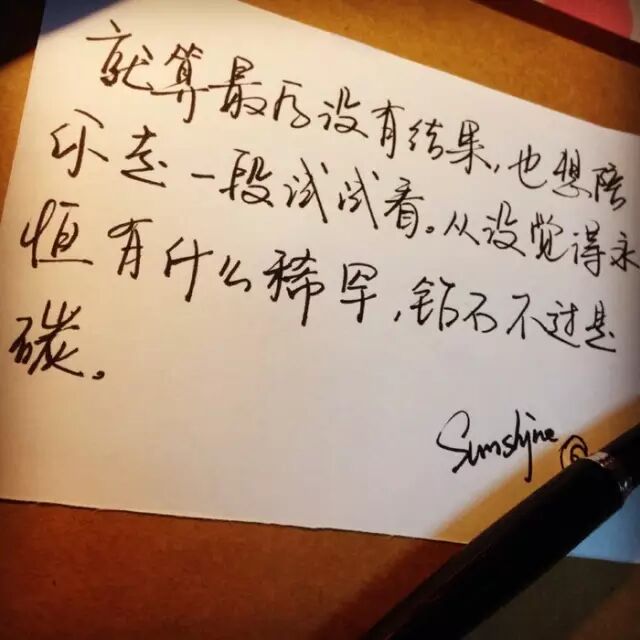 就算最后没有结果，也想陪
你走一段试试看。从没觉得永
恒有什么稀罕，钻石不过是
碳。
Sunshine